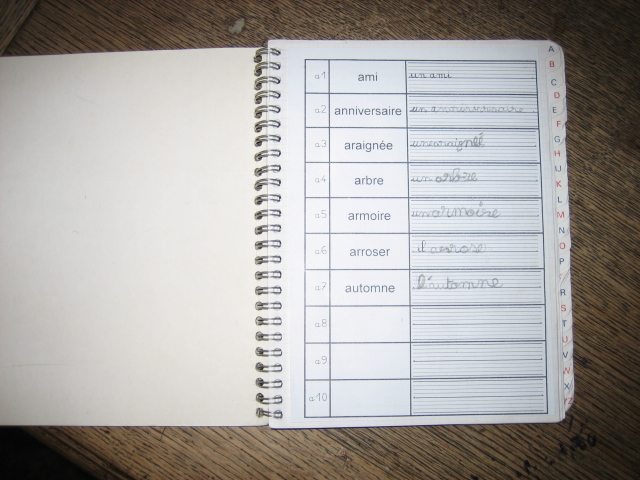 a1 ami un ami
a2 anniversaire un anniversaire
a3 araignée une araignée
a4 arbre un arbre
a5 armoire un armoire
a6 arroser il arrose
a7 automne l'automne
a8
a9
a10
A
B
C
D
E
F
G
H
U
K
L
M
N
O
P
R
S
T
U
V
W
X
YZ